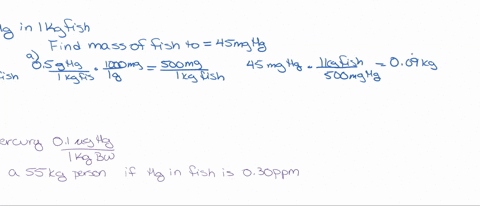 Hg in 1 kg fish
Find mass of fish to = 45mg Hg
a) 0.5g Hg / 1 kg fis · 1000mg / 1g = 500mg / 1 kg fish 45 mg Hg · 1 kg fish / 500 mg Hg = 0.09 kg
fish
ercury 0.1 ug Hg / 1 kg BW
a 55 kg person if Hg in fish is 0.30ppm